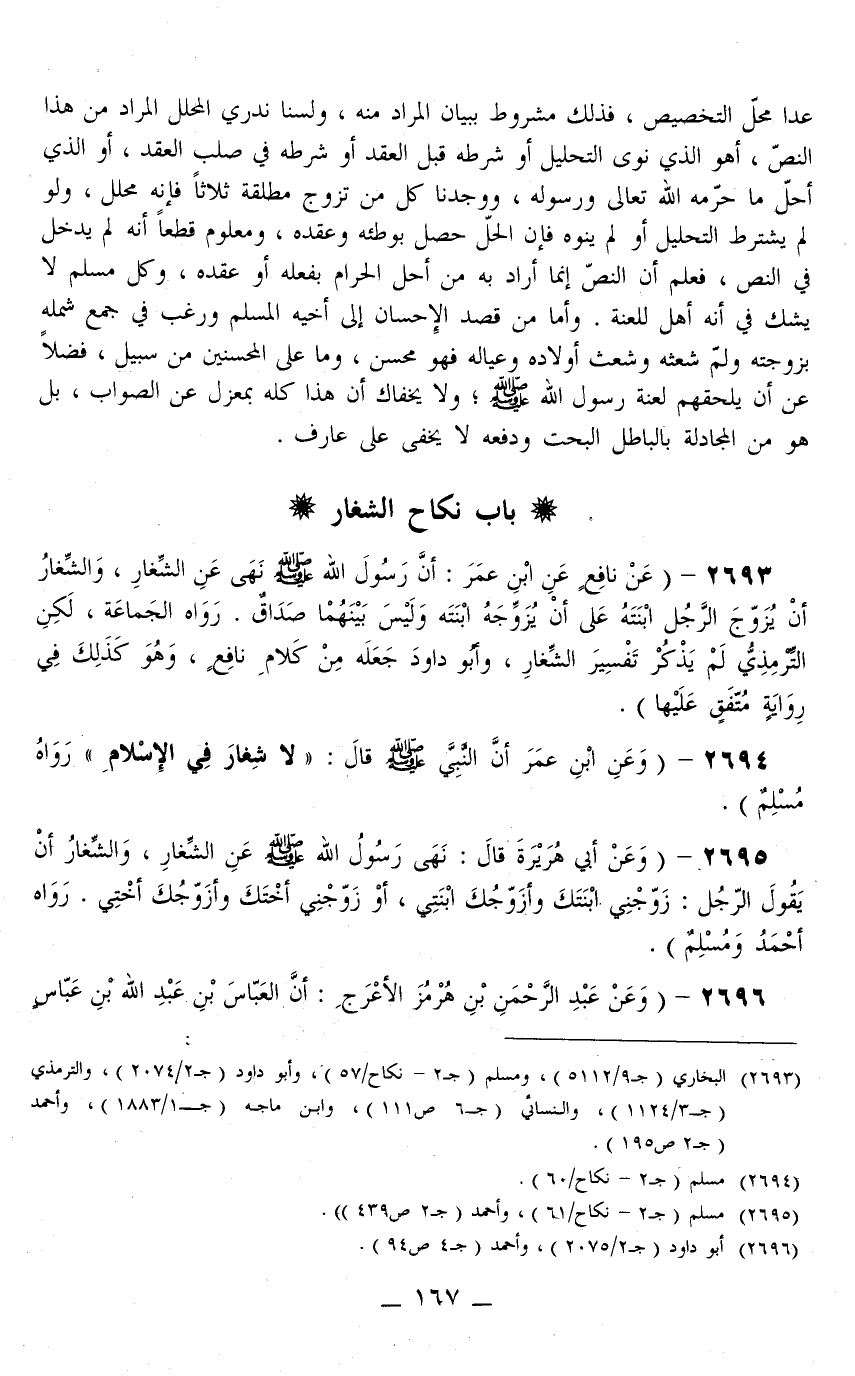 عدا محلّ التخصيص ، فذلك مشروط ببيان المراد منه ، ولسنا ندري المحلل المراد من هذا
النصّ ، أهو الذي نوى التحليل أو شرطه قبل العقد أو شرطه في صلب العقد ، أو الذي
أحلّ ما حرّمه الله تعالى ورسوله ، ووجدنا كل من تزوج مطلقة ثلاثاً فإنه محلل ، ولو
لم يشترط التحليل أو لم ينوه فإن الحلّ حصل بوطئه وعقده ، ومعلوم قطعاً أنه لم يدخل
في النص ، فعلم أن النصّ إنما أراد به من أحل الحرام بفعله أو عقده ، وكل مسلم لا
يشك في أنه أهل للعنة . وأما من قصد الإحسان إلى أخيه المسلم ورغب في جمع شمله
بزوجته ولمّ شعثه وشعث أولاده وعياله فهو محسن ، وما على المحسنين من سبيل ، فضلاً
عن أن يلحقهم لعنة رسول الله ﷺ ؛ ولا يخفاك أن هذا كله بمعزل عن الصواب ، بل
هو من المجادلة بالباطل البحت ودفعه لا يخفى على عارف .
باب نكاح الشغار
٢٦٩٣ – ( عَنْ نافِعٍ عَنِ ابْنِ عمَرَ : أنَّ رَسُولَ الله ﷺ نَهَى عَنِ الشِّغارِ ، وَالشِّغارُ
أنْ يُزَوّجَ الرَّجُل ابْنَتَهُ عَلى أنْ يُزَوِّجَهُ ابْنَتَه وَلَيْسَ بَيْنَهُمْا صَدَاقٌ . رَوَاه الجَماعَة ، لَكِنِ
التِّرْمِذِيُّ لَمْ يَذْكُرْ تَفْسِيرَ الشِّغارِ ، وأبُو داودَ جَعَلَه مِنْ كَلامِ نافِعٍ ، وَهُوَ كَذَلِكَ فِي
رِوَايَةٍ مُتّفَقٍ عَلَيْها ) .
٢٦٩٤ – ( وَعَنِ ابْنِ عمَرَ أنَّ النَّبِيَّ ﷺ قالَ : « لا شِغارَ فِي الإِسْلامِ » رَوَاهُ
مُسْلِمٌ ) .
٢٦٩٥ – ( وَعَنْ أبي هُرَيْرَةَ قالَ : نَهَى رَسُولُ الله ﷺ عَنِ الشِّغارِ ، وَالشِّغارُ أنْ
يَقُولَ الرّجُل : زَوّجْنِي ابْنَتَكَ وأزَوِّجُكَ ابْنَتِي ، أوْ زَوّجْنِي أخْتَكَ وأزَوّجُكَ أخْتِي . رَوَاه
أحْمَدُ وَمُسْلِمٌ ) .
٢٦٩٦ – ( وَعَنْ عَبْدِ الرَّحْمَنِ بْنِ هُرْمُزَ الأعْرَجِ : أنَّ العَبّاسَ بْنِ عَبْدِ الله بْنِ عَبّاسٍ
(٢٦٩٣) البخاري ( جـ٥١١٢/٩ ) ، ومسلم ( جـ٢ – نكاح/٥٧ ) ، وأبو داود ( جـ٢٠٧٤/٢ ) ، والترمذي
( جـ١١٢٤/٣ ) ، والنسائي ( جـ٦ ص١١١ ) ، وابن ماجه ( جـ١٨٨٣/١ ) ، وأحمد
( جـ٢ ص١٩٥ ) .
(٢٦٩٤) مسلم ( جـ٢ – نكاح/٦٠ ) .
(٢٦٩٥) مسلم ( جـ٢ – نكاح/٦١ ) ، وأحمد ( جـ٢ ص٤٣٩ )) .
(٢٦٩٦) أبو داود ( جـ٢٠٧٥/٢ ) ، وأحمد ( جـ٤ ص٩٤ ) .
– ١٦٧ –